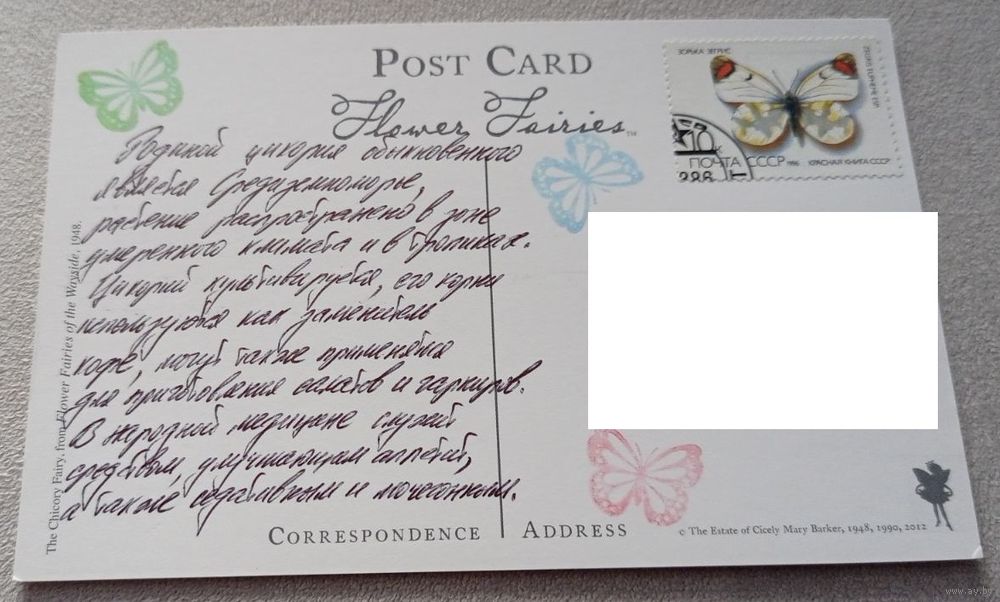 POST CARD
Flower Fairies™
ЗОРЬКА ЭГРИС
ZEGRIS EUPHEME ESP.
10
ПОЧТА СССР
1986
КРАСНАЯ КНИГА СССР
Родиной цикория обыкновенного
является Средиземноморье,
растение распространено в зоне
умеренного климата и в тропиках.
Цикорий культивируется, его корни
используются как заменитель
кофе, могут также применятся
для приготовления салатов и гарниров.
В народной медицине служит
средством, улучшающим аппетит,
а также седативным и мочегонным.
The Chicory Fairy, from Flower Fairies of the Wayside, 1948.
CORRESPONDENCE
ADDRESS
© The Estate of Cicely Mary Barker, 1948, 1990, 2012
www.ay.by